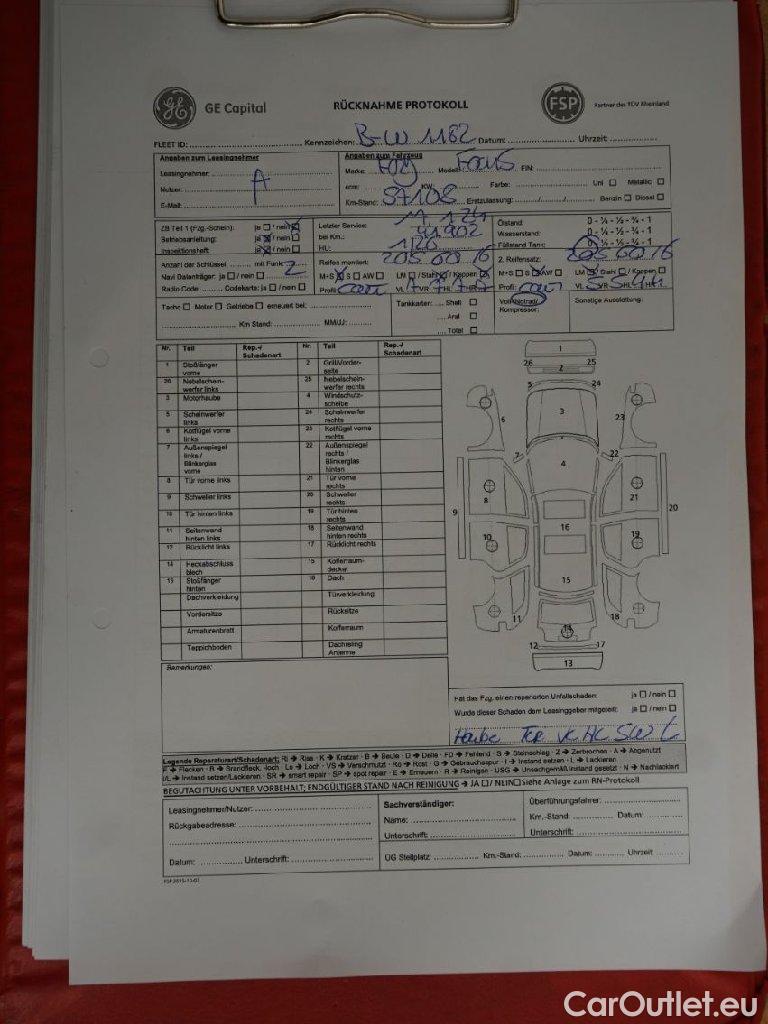 GE Capital
RÜCKNAHME PROTOKOLL
FSP
Partner des TÜV Rheinland
FLEET ID: Kennzeichen: B-W 1182 Datum: Uhrzeit:
Angaben zum Leasingnehmer
Leasingnehmer:
Nutzer:
E-Mail:
A
Angaben zum Fahrzeug
Marke: Modell: Focus FIN:
ccm: KW: Farbe: Uni Metallic
Km-Stand: 87108 Erstzulassung: Benzin Diesel
ZB Teil 1 (Fzg.-Schein): ja / nein
Betriebsanleitung: ja / nein
Inspektionsheft ja / nein
Letzter Service:
bei Km.: 41902
HU:
Ölstand: 0 - ¼ - ½ - ¾ - 1
Wasserstand: 0 - ¼ - ½ - ¾ - 1
Füllstand Tank: 0 - ¼ - ½ - ¾ - 1
Anzahl der Schlüssel mit Funk 2
Navi Datenträger: ja / nein
Radio Code Codekarte: ja / nein
Reifen montiert: 205 60 16
M+S S AW
LM / Stahl / Kappen
Profil VL VR HL HR
2. Reifensatz: 205 60 16
M+S S AW
LM Stahl / Kappen
Profil: VL VR HL HR
Tacho Motor Getriebe erneuert bei:
Km Stand: MM/JJ:
Tankkarten: Shell
Aral
Total
Kompressor:
Sonstige Ausstattung:
Nr. Teil Rep.-/ Schadenart Nr. Teil Rep.-/ Schadenart
1 Stoßfänger vorne 2 Grill/Vorderseite
26 Nebelscheinwerfer links 25 Nebelscheinwerfer rechts
3 Motorhaube 4 Windschutzscheibe
5 Scheinwerfer links 24 Scheinwerfer rechts
6 Kotflügel vorne links 23 Kotflügel vorne rechts
7 Außenspiegel links / Blinkerglas vorne 22 Außenspiegel rechts / Blinkerglas hinten
8 Tür vorne links 21 Tür vorne rechts
9 Schweller links 20 Schweller rechts
10 Tür hinten links 19 Tür hinten rechts
11 Seitenwand hinten links 18 Seitenwand hinten rechts
12 Rücklicht links 17 Rücklicht rechts
14 Heckabschlussblech 15 Kofferraumdeckel
13 Stoßfänger hinten 16 Dach
Dachverkleidung Türverkleidung
Vordersitze Rücksitze
Armaturenbrett Kofferraum
Teppichboden Dachreling Antenne
1
26 25
2
5 24
3
6 23
7 22
4
8 21
9 20
16
10 19
15
11 18
14
12 17
13
Bemerkungen:
Hat das Fzg. einen reparierten Unfallschaden: ja / nein
Wurde dieser Schaden dem Leasinggeber mitgeteilt: ja / nein
Haube
Legende Reparaturart/Schadenart: RI → Riss · K → Kratzer · B → Beule · D → Delle · FD → Fehlend · S → Steinschlag · Z → Zerbrochen · A → Abgenutzt
F → Flecken · R → Brandfleck, -loch · Lo → Loch · VS → Verschmutzt · Ro → Rost · G → Gebrauchsspur · I → Instand setzen · L → Lackieren
I/L → Instand setzen/Lackieren · SR → smart repair · SP → spot repair · E → Erneuern · R → Reinigen · USG → Unsachgemäß instand gesetzt · N → Nachlackiert
BEGUTACHTUNG UNTER VORBEHALT; ENDGÜLTIGER STAND NACH REINIGUNG → JA / NEIN siehe Anlage zum RN-Protokoll
Leasingnehmer/Nutzer:
Rückgabeadresse:
Datum: Unterschrift:
Sachverständiger:
Name:
Unterschrift:
Überführungsfahrer:
Km.-Stand: Datum:
Unterschrift:
OG Stellplatz: Km.-Stand: Datum: Uhrzeit
CarOutlet.eu